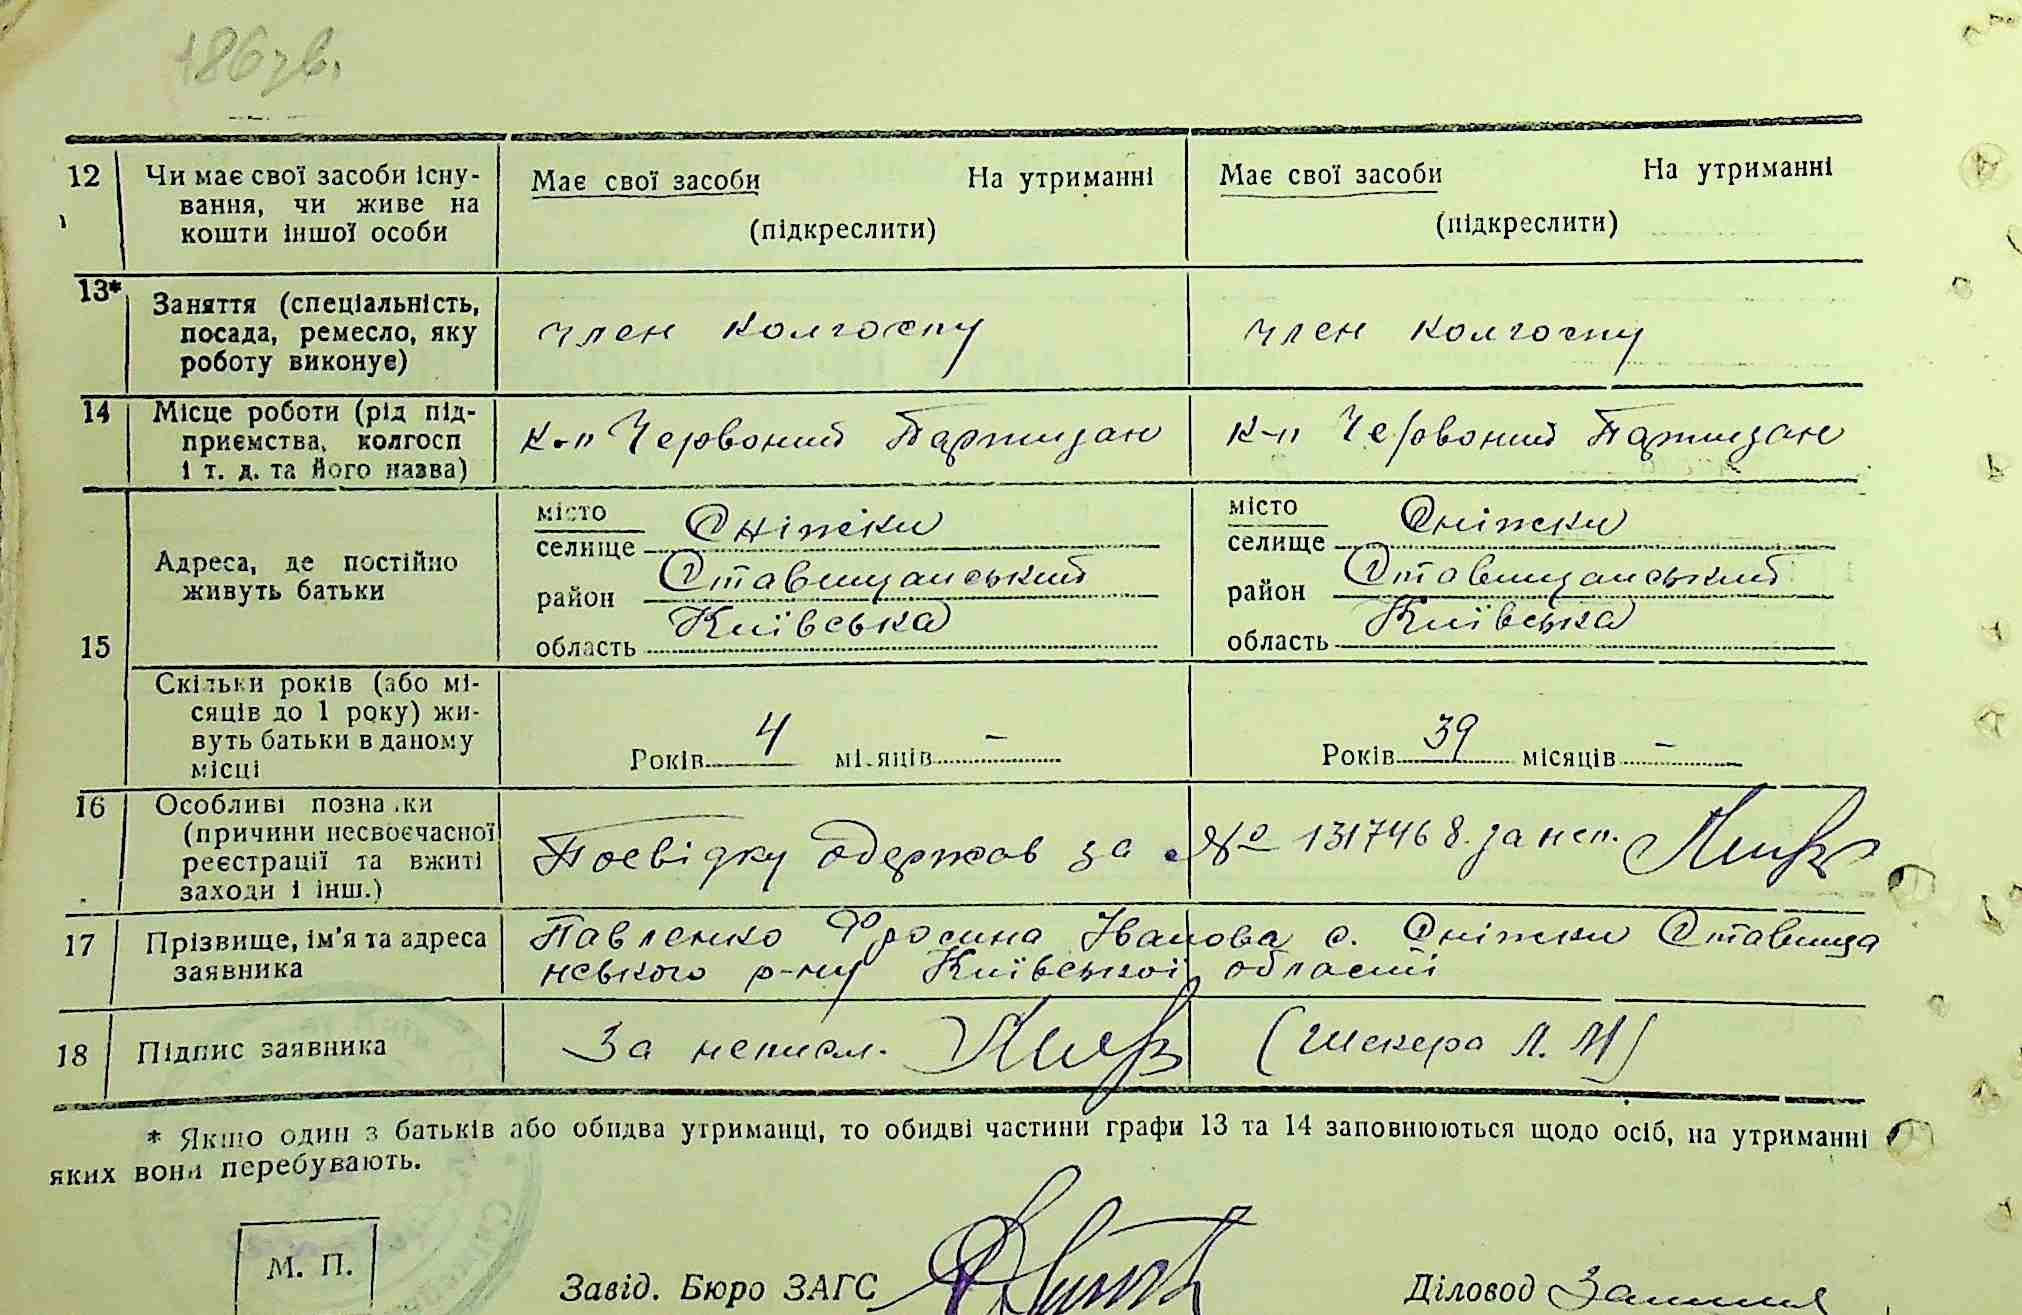 186 зв.
12 Чи має свої засоби існу- Має свої засоби На утриманні Має свої засоби На утриманні
вання, чи живе на
кошти іншої особи (підкреслити) (підкреслити)
13* Заняття (спеціальність,
посада, ремесло, яку член колгоспу член колгоспу
роботу виконує)
14 Місце роботи (рід під-
приємства, колгосп к-п Червоний Партизан к-п Червоний Партизан
і т. д. та його назва)
15 Адреса, де постійно
живуть батьки
місто
селище Сніжки
район Ставищанський
область Київська
місто
селище Сніжки
район Ставищанський
область Київська
Скільки років (або мі-
сяців до 1 року) жи-
вуть батьки в даному
місці
Років 4 місяців – Років 39 місяців –
16 Особливі познаки
(причини несвоєчасної
реєстрації та вжиті
заходи і інш.)
Посвідку одержав за № 1317468. за неп.
17 Прізвище, ім'я та адреса
заявника
Павленко Фросина Іванова с. Сніжки Ставища
нського р-ну Київської області
18 Підпис заявника За неписм. (Шкера Л. М)
* Якщо один з батьків або обидва утриманці, то обидві частини графи 13 та 14 заповнюються щодо осіб, на утриманні
яких вони перебувають.
М. П.
Завід. Бюро ЗАГС Діловод